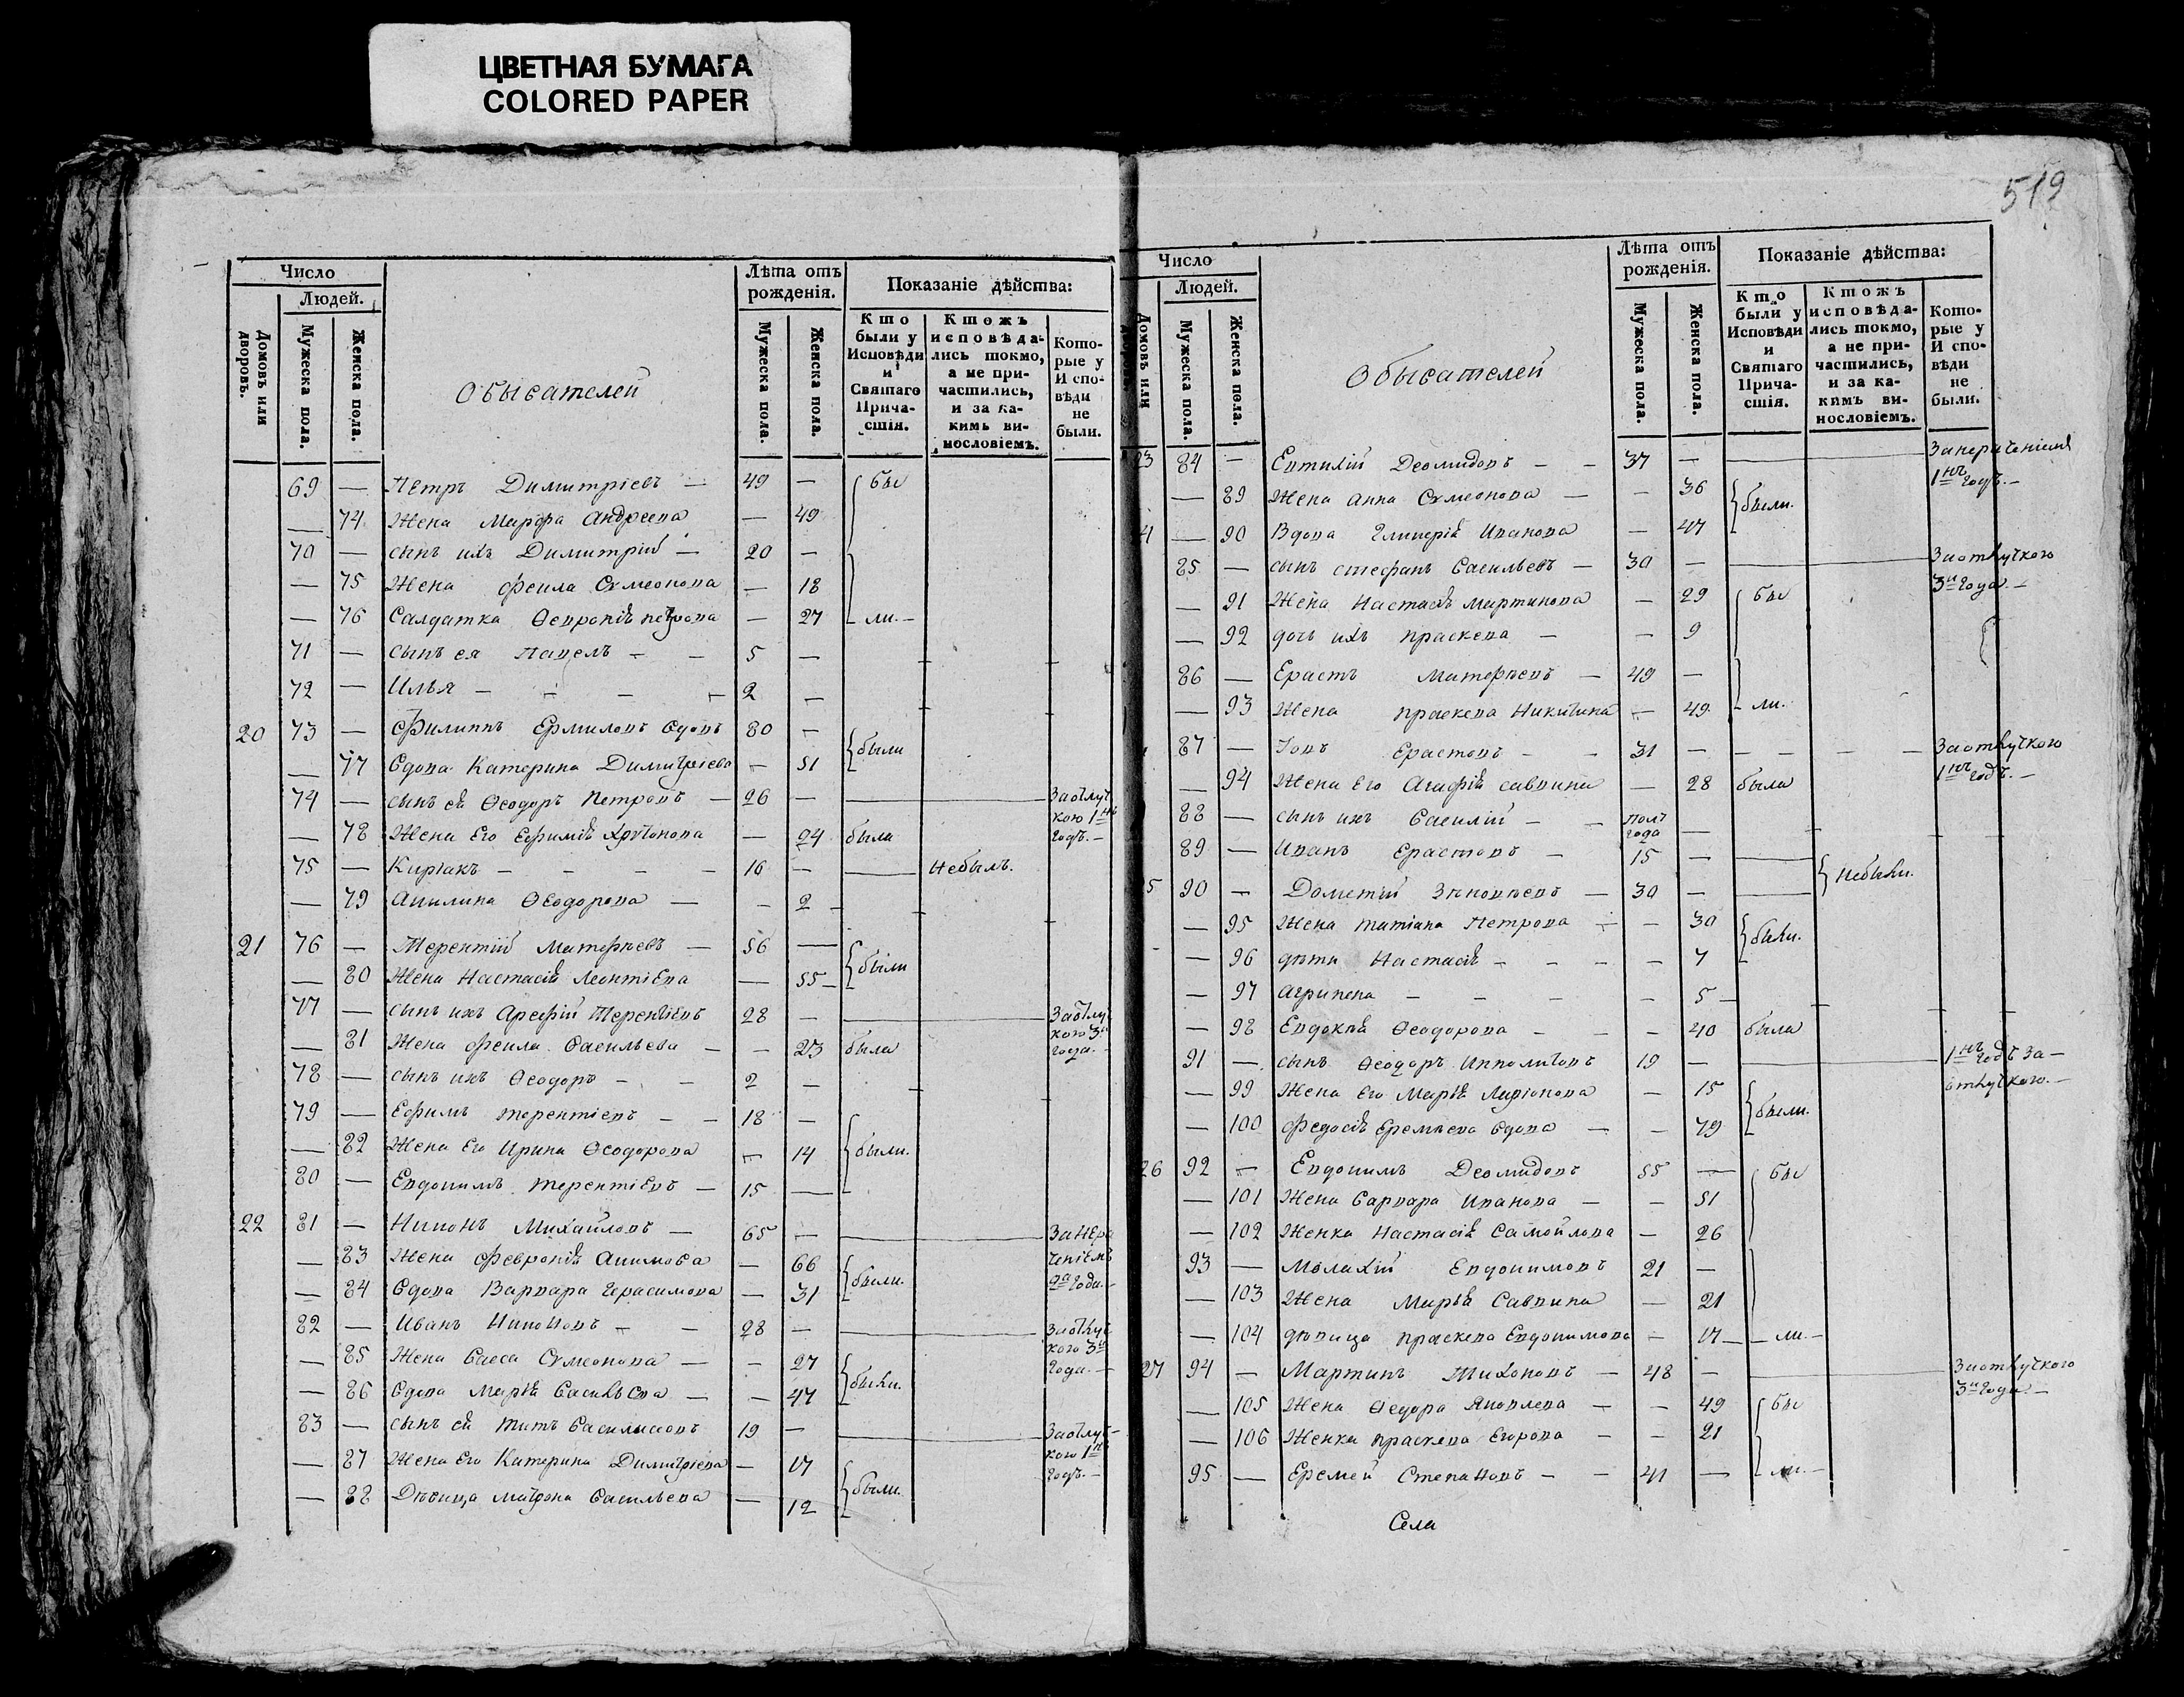 ЦВЕТНАЯ БУМАГА
COLORED PAPER
519
Число
Людей.
Домовъ или дворовъ.
Мужеска пола.
Женска пола.
Обывателей
Лѣта отъ рожденія.
Мужеска пола.
Женска пола.
Показаніе дѣйства:
Кто были у Исповѣди и Святаго Прича-стія.
Ктожъ исповѣда-лись токмо, а не при-частились, и за ка-кимъ ви-нословіемъ.
Кото-рые у Испо-вѣди не были.
69 — Петръ Димитріевъ — 49 — бы
— 74 Жена Марфа Андреева — 49
70 — сынъ ихъ Димитрій — 20 —
— 75 Жена Феила Сѵмеонова — 18
— 76 Салдатка Ѳевроніѣ петрова — 27 ли.—
71 — сынъ ея Павелъ — — 5 —
72 — Илья — — — — 2 —
20 73 — Филиппъ Ермиловъ вдовъ 80 — были
— 77 Вдова Катерина Димитріева — 51
74 — сынъ еѣ Ѳеодоръ Петровъ — 26 — — Заотлуч
кою 1нъ
годъ.—
— 78 Жена Его Ефиміѣ Харитонова — 24 была
75 — Киріакъ — — — — 16 — — Небылъ.
— 79 Акилина Ѳеодорова — — 2 —
21 76 — Терентій Матфѣевъ — 56 — были
— 80 Жена Настасіѣ Леонтіева — 55 —
77 — сынъ ихъ Арефій Терентіевъ 28 — — Заотлуч
кою 3и
года.—
— 81 Жена Феила Васильева — — 23 была
78 — сынъ ихъ Ѳеодоръ — — 2 —
79 — Ефимъ терентіевъ — — 18 — были.
— 82 Жена Его Ирина Ѳеодорова — 14
80 — Евдокимъ терентіевъ — 15 —
22 81 — Никонъ Михайловъ — 65 — — Занера
ченіемъ
2а года.—
— 83 Жена Февроніѣ Акимова — 66 были.
— 84 Вдова Варвара Герасимова — 31
82 — Иванъ Никоновъ — — 28 — — Заотлуч
кою 3и
года.—
— 85 Жена Васса Сѵмеонова — — 27 были.
— 86 Вдова Маріѣ Васильева — — 47
83 — сынъ еѣ Титъ Васильевъ 19 — — Заотлуч-
кою 1нъ
годъ.—
— 87 Жена Его Катерина Димитріева — 17 были.
— 88 Дѣвица Матрона Васильева — 12
Число
Людей.
Домовъ или
Мужеска пола.
Женска пола.
Обывателей
Лѣта отъ рожденія.
Мужеска пола.
Женска пола.
Показаніе дѣйства:
Кто были у Исповѣди и Святаго Прича-стія.
Ктожъ исповѣда-лись токмо, а не при-частились, и за ка-кимъ ви-нословіемъ.
Кото-рые у Испо-вѣди не были.
23 84 — Евтихій Деомидовъ — — 37 — — Занераченіемъ
1нъ годъ.—
— 89 Жена Анна Сѵмеонова — — 36 были.
4 — 90 Вдова Гликеріѣ Иванова — 47
85 — сынъ стефанъ Васильевъ — 30 — — Заотлучкою
3и года.—
— 91 Жена Настасіѣ мартинова — 29 бы
— 92 дочь ихъ праскева — — 9
86 — Ерастъ Матфѣевъ — 49 —
— 93 Жена праскева Никитина — 49 — ли.
87 — Іовъ Ерастовъ — — 31 — — — — — Заотлучкою
1нъ годъ.—
— 94 Жена Его Агафіѣ саввина — 28 была
88 — сынъ ихъ Василій — — полъ года —
89 — Иванъ Ерастовъ — 15 — — Небыли.
5 90 — Дометій Зѣновьевъ — 30 — —
— 95 Жена татіана Петрова — — 30 были.
— 96 дѣти Настасіѣ — — — — 7
— 97 агрипена — — — — 5 —
— 98 Евдокіѣ Ѳеодорова — — — 40 была
91 — сынъ Ѳеодоръ Ипполитовъ 19 — — 1нъ годъ За—
отлучкою.—
— 99 Жена Его Маріѣ Ларіонова — 15 были.
— 100 Федосіѣ Еремѣева вдова — — 79
26 92 — Евдокимъ Деомидовъ 55 — бы
— 101 Жена Варвара Иванова — — 51
— 102 Женка Настасіѣ Самойлова — 26
93 — Малахій Евдокимовъ 21 —
— 103 Жена Марьѣ Саввина — 21
— 104 дѣвица праскева Евдокимова — 17 — — ли.—
27 94 — Мартинъ Тихоновъ — 48 — — Заотлучкою
3и года.—
— 105 Жена Ѳедора Яковлева — — 49 бы
— 106 Женка праскева Егорова — — 21
95 — Еремей Степановъ — — 41 — — ли.—
Села